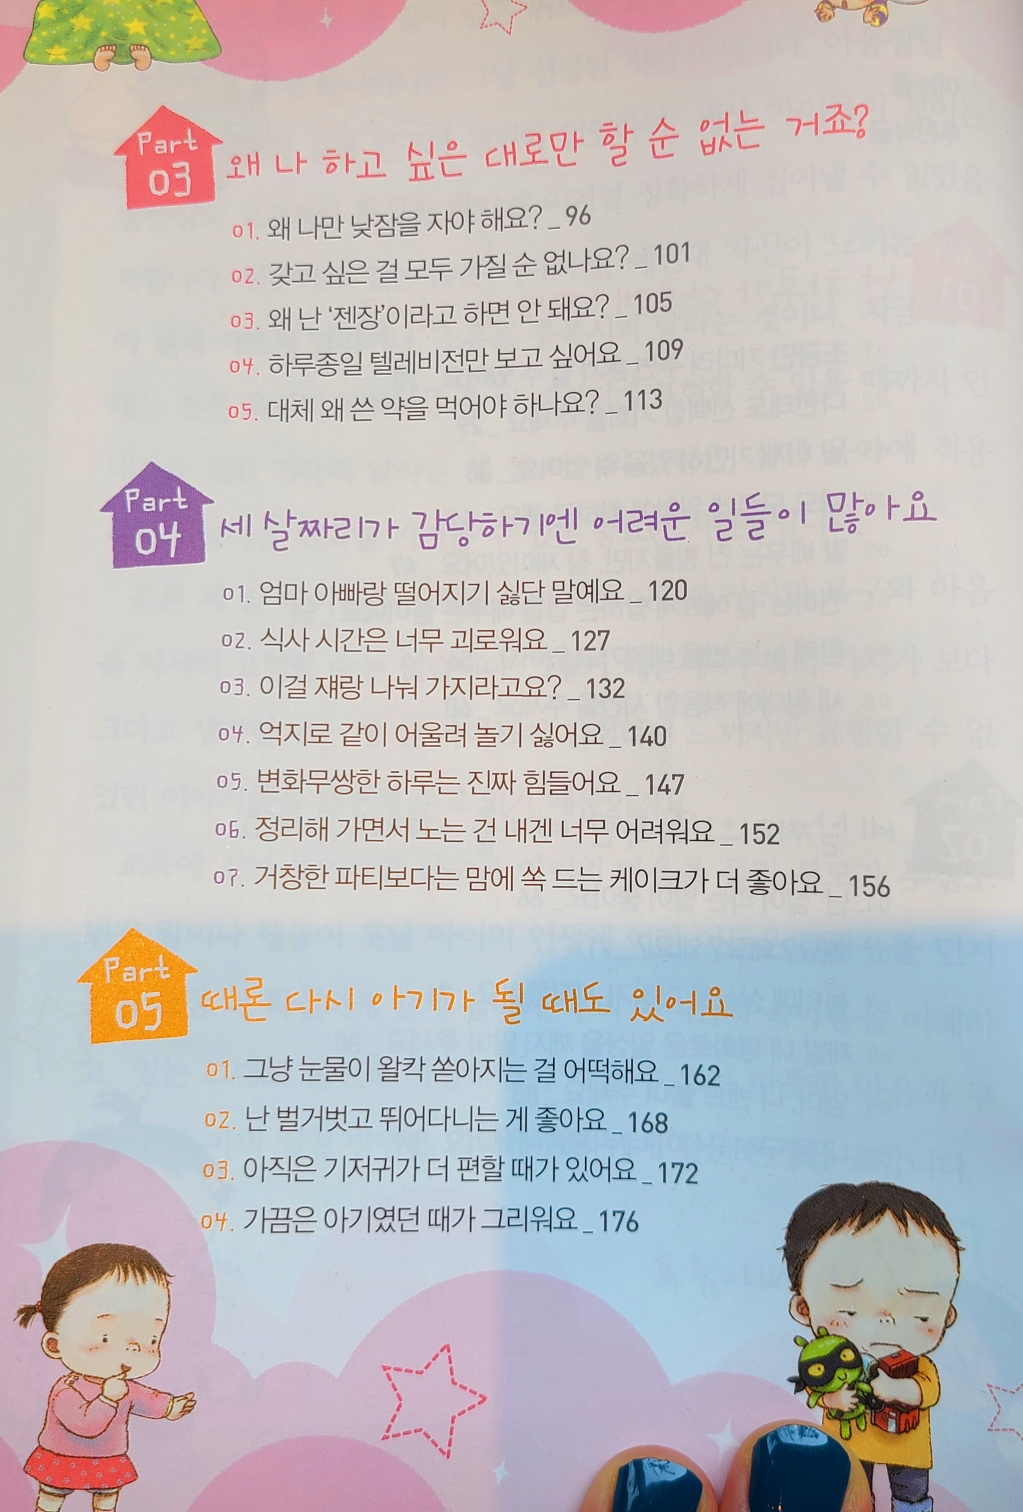 Part
03
왜 나 하고 싶은 대로만 할 순 없는 거죠?
01. 왜 나만 낮잠을 자야 해요? _ 96
02. 갖고 싶은 걸 모두 가질 순 없나요? _ 101
03. 왜 난 ‘젠장’이라고 하면 안 돼요? _ 105
04. 하루종일 텔레비전만 보고 싶어요 _ 109
05. 대체 왜 쓴 약을 먹어야 하나요? _ 113
Part
04
세 살짜리가 감당하기엔 어려운 일들이 많아요
01. 엄마 아빠랑 떨어지기 싫단 말예요 _ 120
02. 식사 시간은 너무 괴로워요 _ 127
03. 이걸 쟤랑 나눠 가지라고요? _ 132
04. 억지로 같이 어울려 놀기 싫어요 _ 140
05. 변화무쌍한 하루는 진짜 힘들어요 _ 147
06. 정리해 가면서 노는 건 내겐 너무 어려워요 _ 152
07. 거창한 파티보다는 맘에 쏙 드는 케이크가 더 좋아요 _ 156
Part
05
때론 다시 아기가 될 때도 있어요
01. 그냥 눈물이 왈칵 쏟아지는 걸 어떡해요 _ 162
02. 난 벌거벗고 뛰어다니는 게 좋아요 _ 168
03. 아직은 기저귀가 더 편할 때가 있어요 _ 172
04. 가끔은 아기였던 때가 그리워요 _ 176